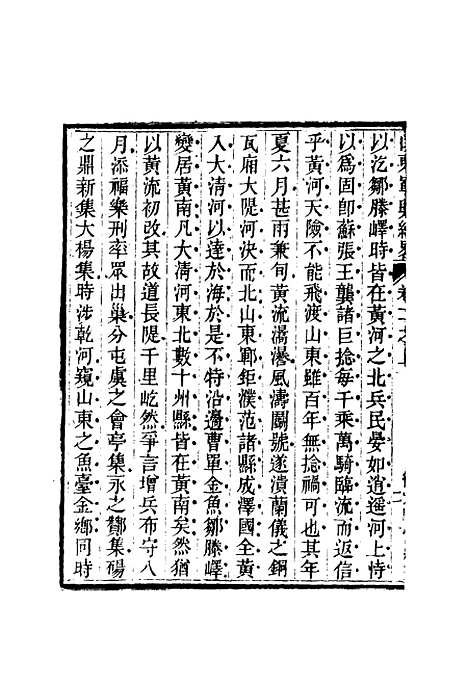 山東軍興紀畧 卷二之上
以汔鄒滕嶧時皆在黃河之北兵民晏如逍遥河上恃
以爲固卽蘇張王龔諸巨捻每千乘萬騎臨流而返信
乎黃河天險不能飛渡山東雖百年無捻禍可也其年
夏六月甚雨兼旬黃流潏㶖風濤鬭號遂潰蘭儀之銅
瓦廂大隄河決而北山東鄆鉅濮范諸縣成澤國全黃
入大清河以達於海於是不特沿邊曹單金魚鄒滕嶧
變居黃南凡大清河東北數十州縣皆在黃南矣然猶
以黃流初改其故道長隄千里屹然爭言增兵布守八
月添福樂刑率眾出巢分屯虞之會亭集永之酇集碭
之鼎新集大楊集時涉乾河窺山東之魚臺金鄉同時